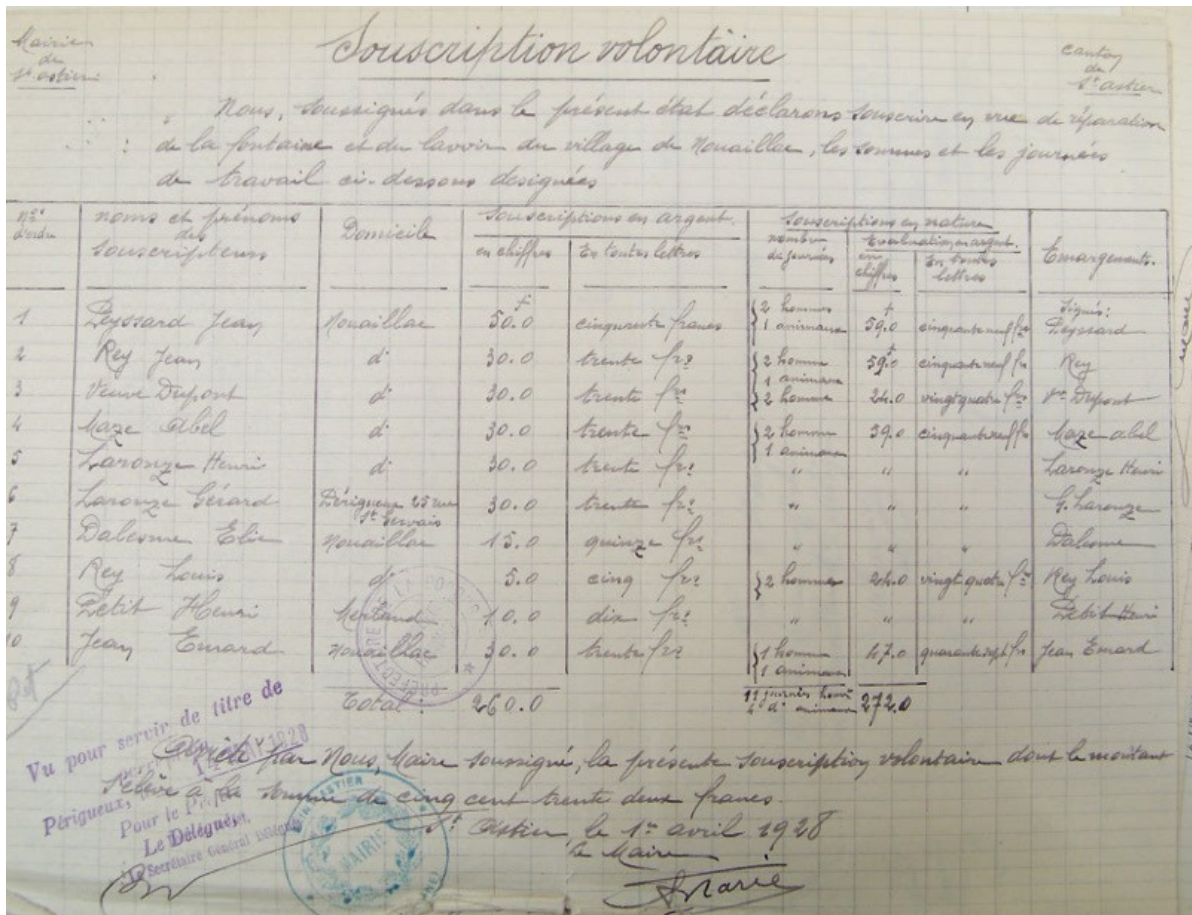 Mairie
de
St astier
Souscription volontaire
Canton
de
St astier
Nous, soussignés dans le présent état déclarons souscrire en vue de réparation
de la fontaine et du lavoir du village de Nouaillac, les sommes et les journées
de travail ci-dessous designées
Nos d'ordre | noms et prénoms des souscripteurs | Domicile | Souscriptions en argent. en chiffres | En toutes lettres | Souscriptions en nature nombre de journées | Evaluation en argent. en chiffres | En toutes lettres | Emargements.
Signés:
1 Peyssard Jean Nouaillac 50f.0 cinquante francs 2 hommes 1 animaux 59f.0 cinquante neuf frs Peyssard
2 Rey Jean do 30.0 trente frs 2 homme 1 animaux 59f.0 cinquante neuf frs Rey
3 Veuve Dupont do 30.0 trente frs 2 homme 24.0 vingt quatre frs Vve Dupont
4 Maze Abel do 30.0 trente frs 2 homme 1 animaux 59.0 cinquante neuf frs Maze abel
5 Laronze Henri do 30.0 trente frs " " " Laronze Henri
6 Laronze Gérard Périgueux 25 rue St Gervais 30.0 trente frs " " " G. Laronze
7 Dalesme Elie Nouaillac 15.0 quinze frs " " " Dalesme
8 Rey Louis do 5.0 cinq frs 2 hommes 24.0 vingt quatre frs Rey Louis
9 Petit Henri 10.0 dix frs " " " Petit Henri
10 Jean Emard Nouaillac 30.0 trente frs 1 homme 1 animaux 47.0 quarante sept frs Jean Emard
Total: 260.0 11 journées homme 4 do animaux 272.0
Vu pour servir de titre de
Arrêté par Nous, Maire soussigné, la présente souscription volontaire dont le montant
s'élève à la somme de cinq cent trente deux francs.
Périgueux,
Pour le Préfet
Le Délégué,
Le Secrétaire Général Délégué
St Astier, le 1er avril 1928
Le Maire
MAIRIE